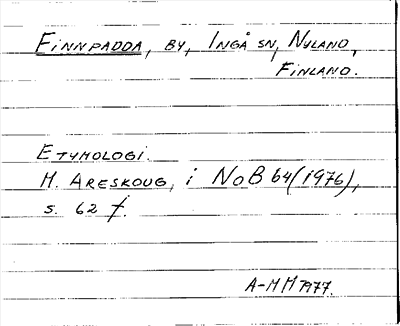 Finnpadda, by, Ingå sn, Nyland,
Finland.
Etymologi.
M. Areskoug, i NoB 64 (1976),
s. 62 f.
A-MM 1977